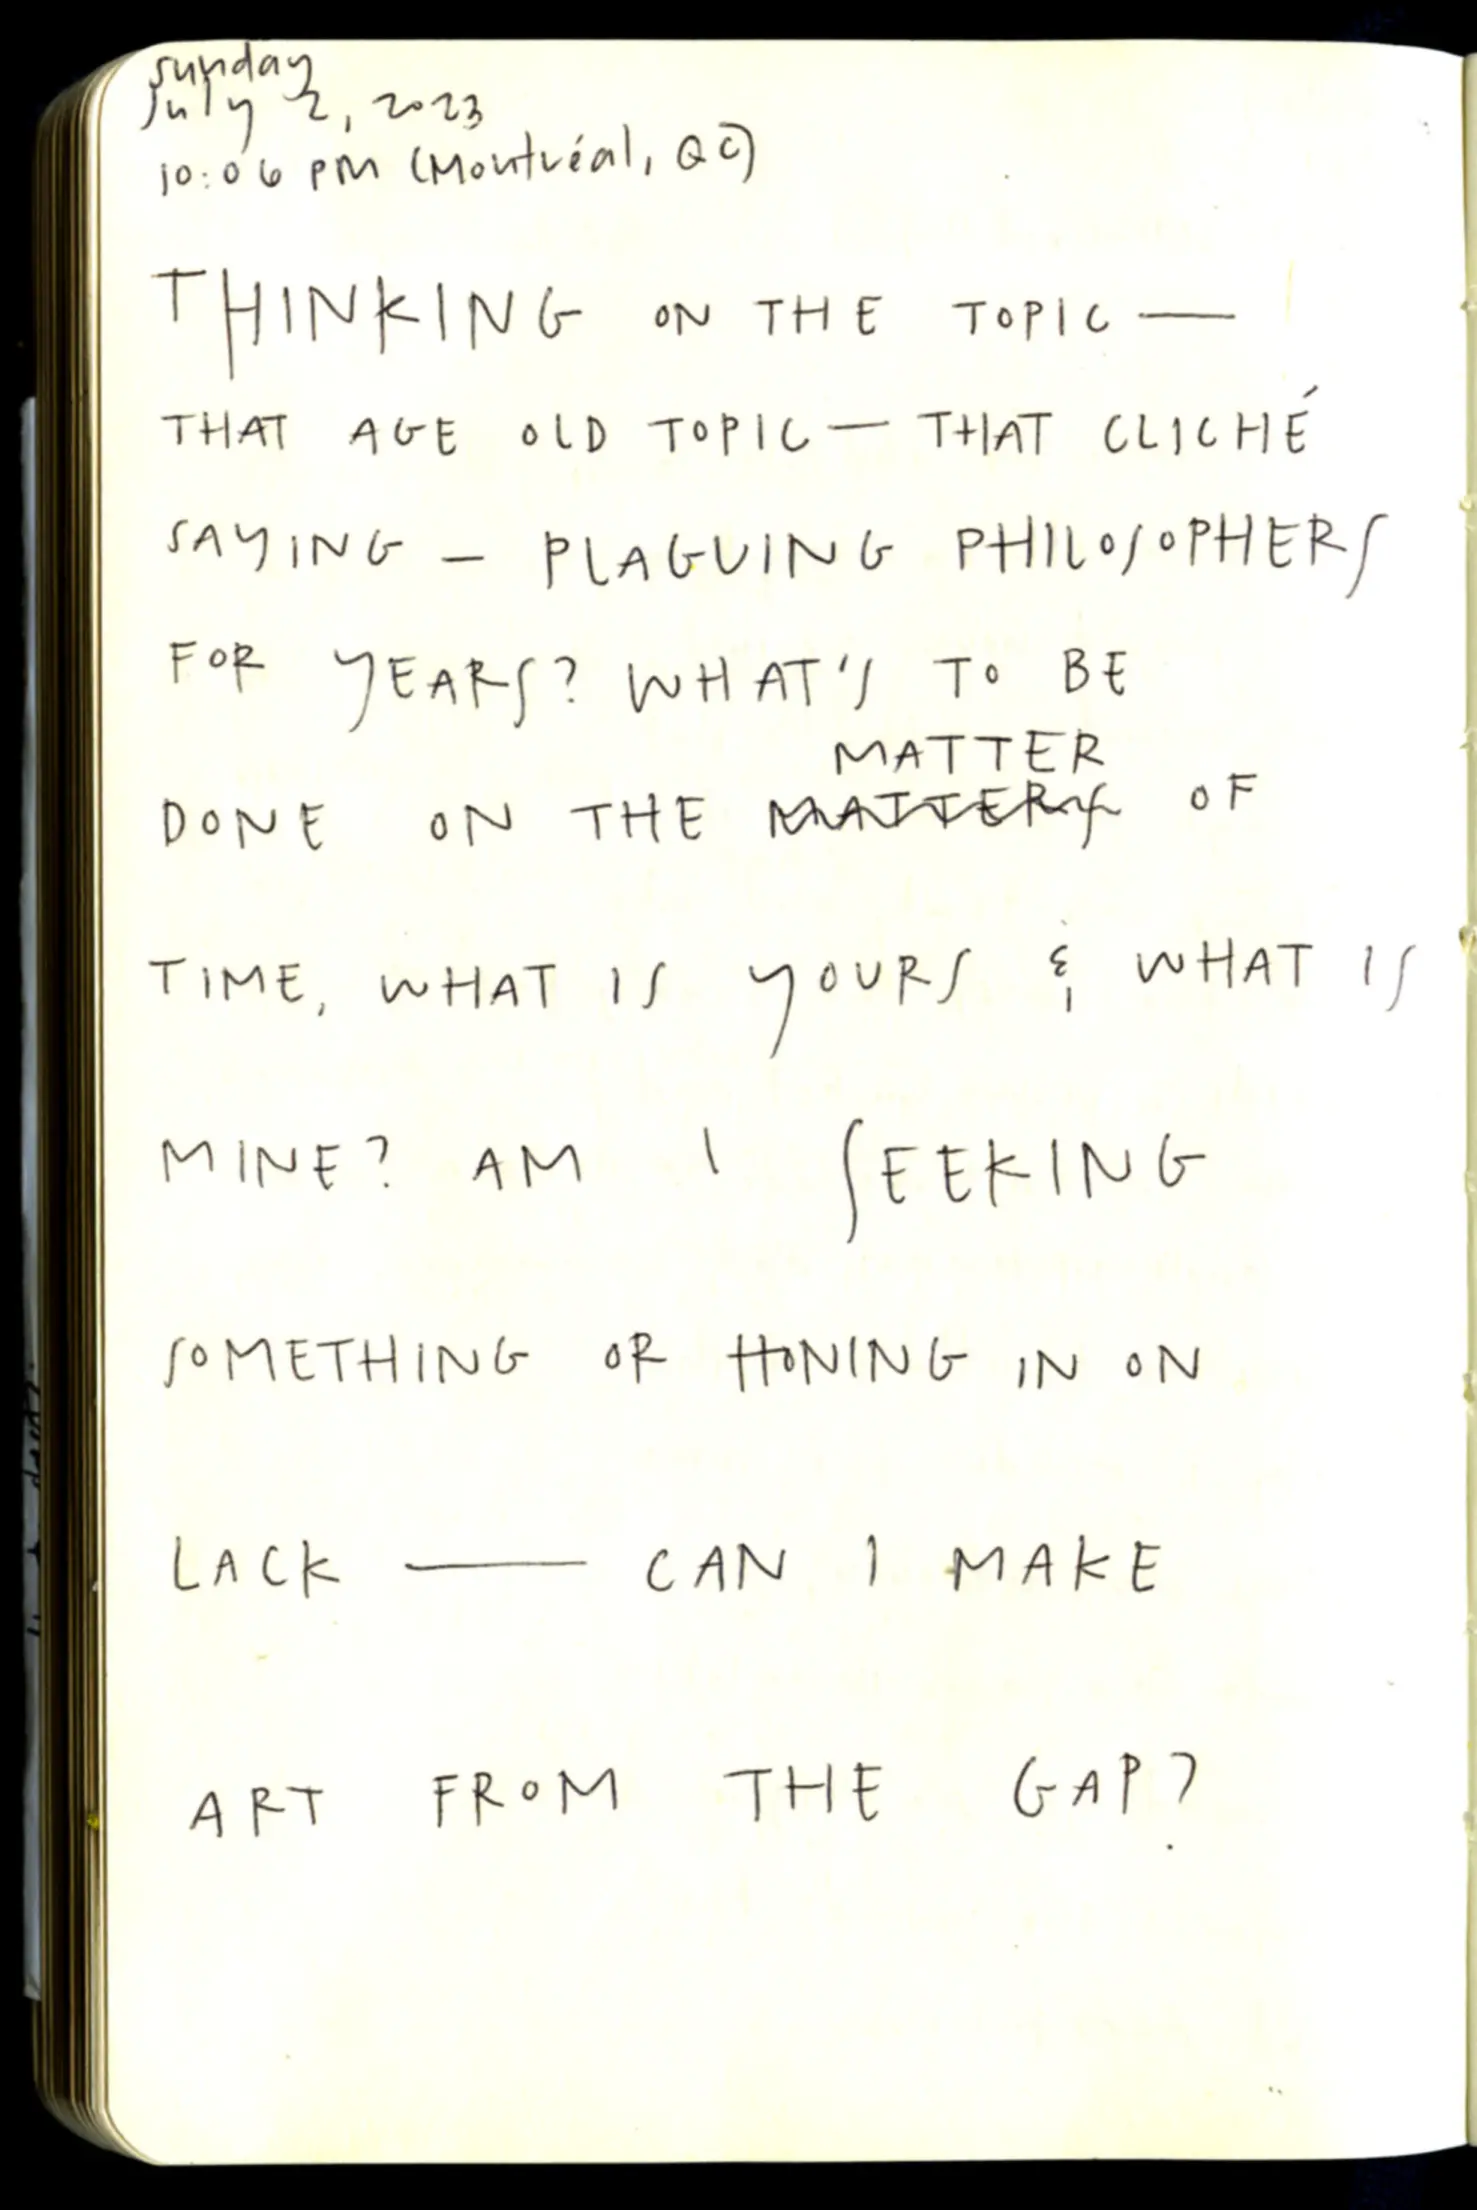 sunday
july 2, 2023
10:06 PM (Montréal, QC)
THINKING ON THE TOPIC —
THAT AGE OLD TOPIC — THAT CLICHÉ
SAYING — PLAGUING PHILOSOPHERS
FOR YEARS? WHAT'S TO BE
MATTER
DONE ON THE MATTERS OF
TIME, WHAT IS YOURS & WHAT IS
MINE? AM I SEEKING
SOMETHING OR HONING IN ON
LACK — CAN I MAKE
ART FROM THE GAP?